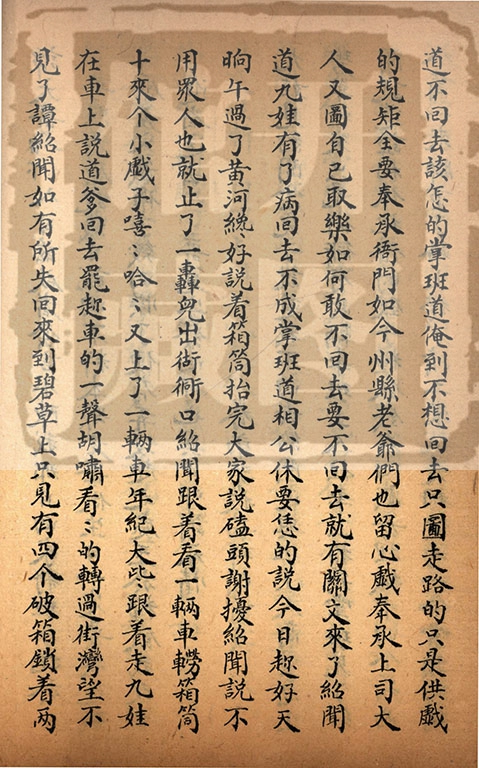 道不回去該怎的掌班道俺到不想回去只圖走路的只是供戲
的規矩全要奉承衙門如今州縣老爺們也留心戲奉承上司大
人又圖自己取樂如何敢不回去要不回去就有關文來了紹聞
道九娃有了病回去不成掌班道相公休要恁的說今日趂好天
晌午過了黄河纔好說着箱筒抬完大家說磕頭謝擾紹聞說不
用眾人也就止了一轟兒出衚衕口紹聞跟着看一輛車轎箱筒
十來个小戲子嘻〻哈〻又上了一輛車年紀大些跟着走九娃
在車上說道爹回去罷趂車的一聲胡嘯看〻的轉過街灣望不
見了譚紹聞如有所失回來到碧草上只見有四个破箱鎖着兩